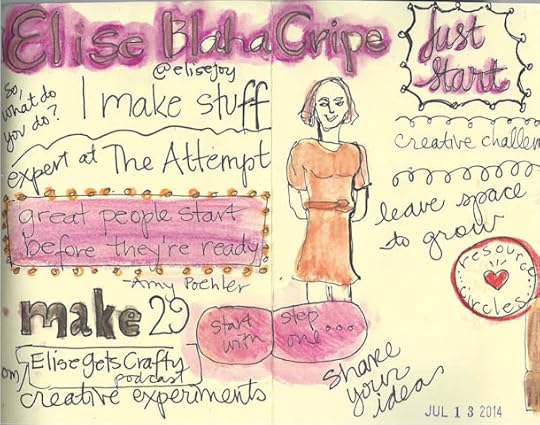 Elise Blaha Cripe
@elisejoy
So,
what do
you do?
I make stuff
expert at The Attempt
great people start
before they're ready
-Amy Poehler
make 29
Elise gets Crafty
podcast
creative experiments
start
with
step
one....
Just
Start
creative challen
leave space
to grow
resource
circles
share
your
ideas
JUL 13 2014